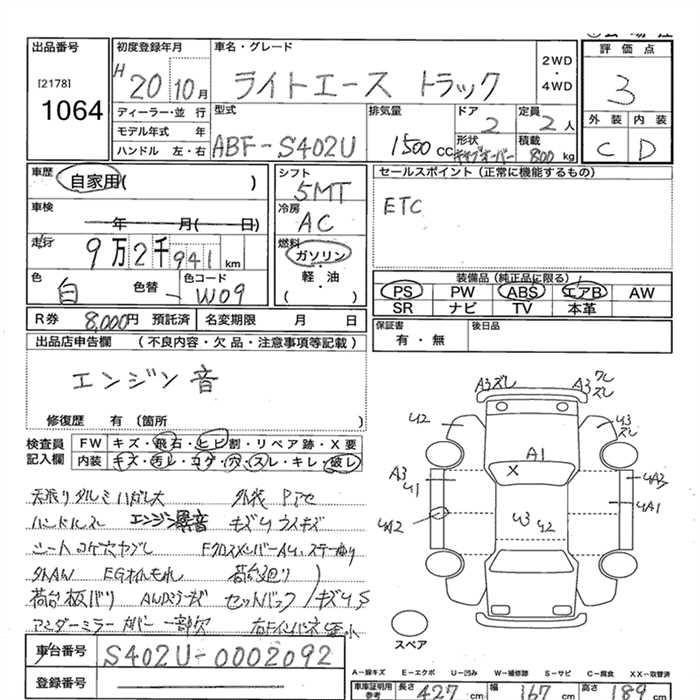 出品番号 初度登録年月 車名・グレード 2WD・4WD 評価点
[2178] H 20 10月 ライトエース トラック 3
1064
ディーラー・並行 型式 排気量 ドア 定員 外装 内装
モデル年式 年 ABF-S402U 1500cc 2 2人 C D
ハンドル 左・右 形状 キャブオーバー 積載 800kg
車歴 自家用( ) シフト 5MT セールスポイント(正常に機能するもの)
車検 年 月( 日) 冷房 AC ETC
走行 9万2千941km 燃料 ガソリン・軽・油
( )
色 白 色替 - 色コード W09
装備品(純正品に限る)
PS PW ABS エアB AW
SR ナビ TV 本革
R券 8,000円 預託済 名変期限 月 日
保証書 有・無 後日品
出品店申告欄 (不良内容・欠品・注意事項等記載)
エンジン音
修復歴 有(箇所 )
検査員記入欄 FW キズ・飛石・ヒビ割・リペア跡・X要
内装 キズ・汚レ・コゲ・穴・スレ・キレ・破レ
天張りタルミハガレ大
エンジン異音 キズU ウスキズ
シートコゲ穴ヤブレ
荷台廻り
セットバック キズU,S
アンダーミラーカバー一部欠
A3ズレ A3 ズレ
U2 U3 ズレ
A1
X
A3 U1
UA3
UA1
UA2
U3 U2
スペア
車台番号 S402U-0002092
登録番号
A−線キズ E−エクボ U−凹み W−補修跡 S−サビ C−腐食 XX−取替済
車庫証明用参考 長さ 427cm 幅 167cm 高さ 189cm